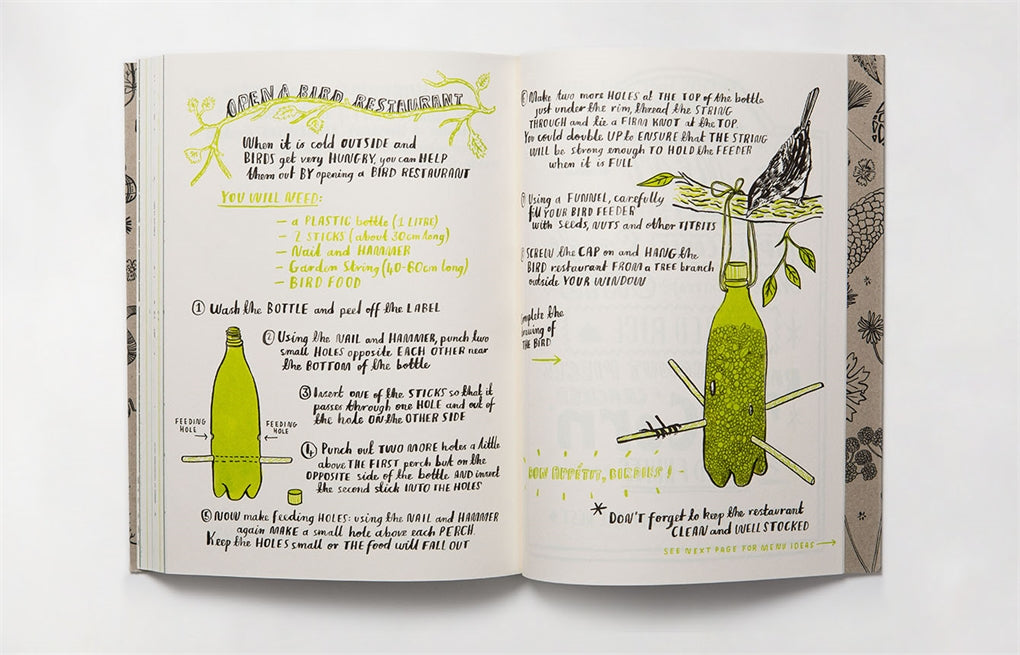 OPEN A BIRD RESTAURANT
When it is cold OUTSIDE and
BIRDS get very HUNGRY, you can HELP
them out BY opening a BIRD RESTAURANT
YOU WILL NEED:
– a PLASTIC bottle (1 LITRE)
– 2 STICKS (about 30cm long)
– Nail and HAMMER
– Garden String (40-60cm long)
– BIRD FOOD
1 Wash the BOTTLE and peel off the LABEL
2 Using the NAIL and HAMMER, punch two
small HOLES opposite EACH OTHER near
the BOTTOM of the bottle
3 Insert ONE of the STICKS so that it
passes through one HOLE and out of
the hole ON the OTHER SIDE
FEEDING
HOLE
FEEDING
HOLE
4 Punch out TWO MORE holes a little
above THE FIRST perch but on the
OPPOSITE side of the bottle AND insert
the second stick INTO THE HOLES
5 NOW make feeding HOLES: using the NAIL and HAMMER
again MAKE a small hole above each PERCH.
Keep the HOLES small or THE food will FALL OUT
Make two more HOLES at THE TOP of the bottle
just under the rim, thread the STRING
THROUGH and tie a FIRM KNOT at the TOP.
You could double UP to ENSURE that THE STRING
WILL be strong enough TO HOLD the FEEDER
when it is FULL
Using a FUNNEL, carefully
fill YOUR BIRD FEEDER
with seeds, NUTS and other TITBITS
SCREW the CAP on and HANG the
BIRD restaurant FROM a TREE branch
outside YOUR WINDOW
the
drawing of
THE BIRD
APPÉTIT, BIRDIES!
* DON'T forget to keep the restaurant
CLEAN and WELL STOCKED
SEE NEXT PAGE FOR MENU IDEAS